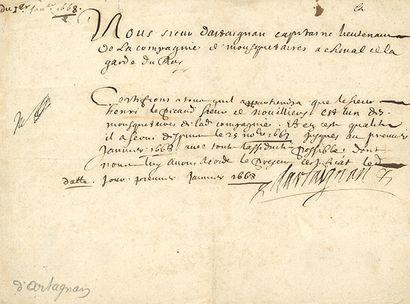 du 1er Janv. 1668
Nous sieur dartaignan capitaine lieutenant
de La compagnie de mousquetaires a cheval de la
garde du Roy
Certifions a tous quil appartiendra que le sieur
henri le Picard sieur de Nouilliers est un des
mousquetaires de lad. compagnie. Et en cest qualite
il a servi depuis le 15 1667 jusques au premier
Janvier 1668 avec toute lassiduite possible. dont
nous luy avons acorde le present certificat led
datte. Jour premier Janvier 1668
dartaignan
d'artagnan